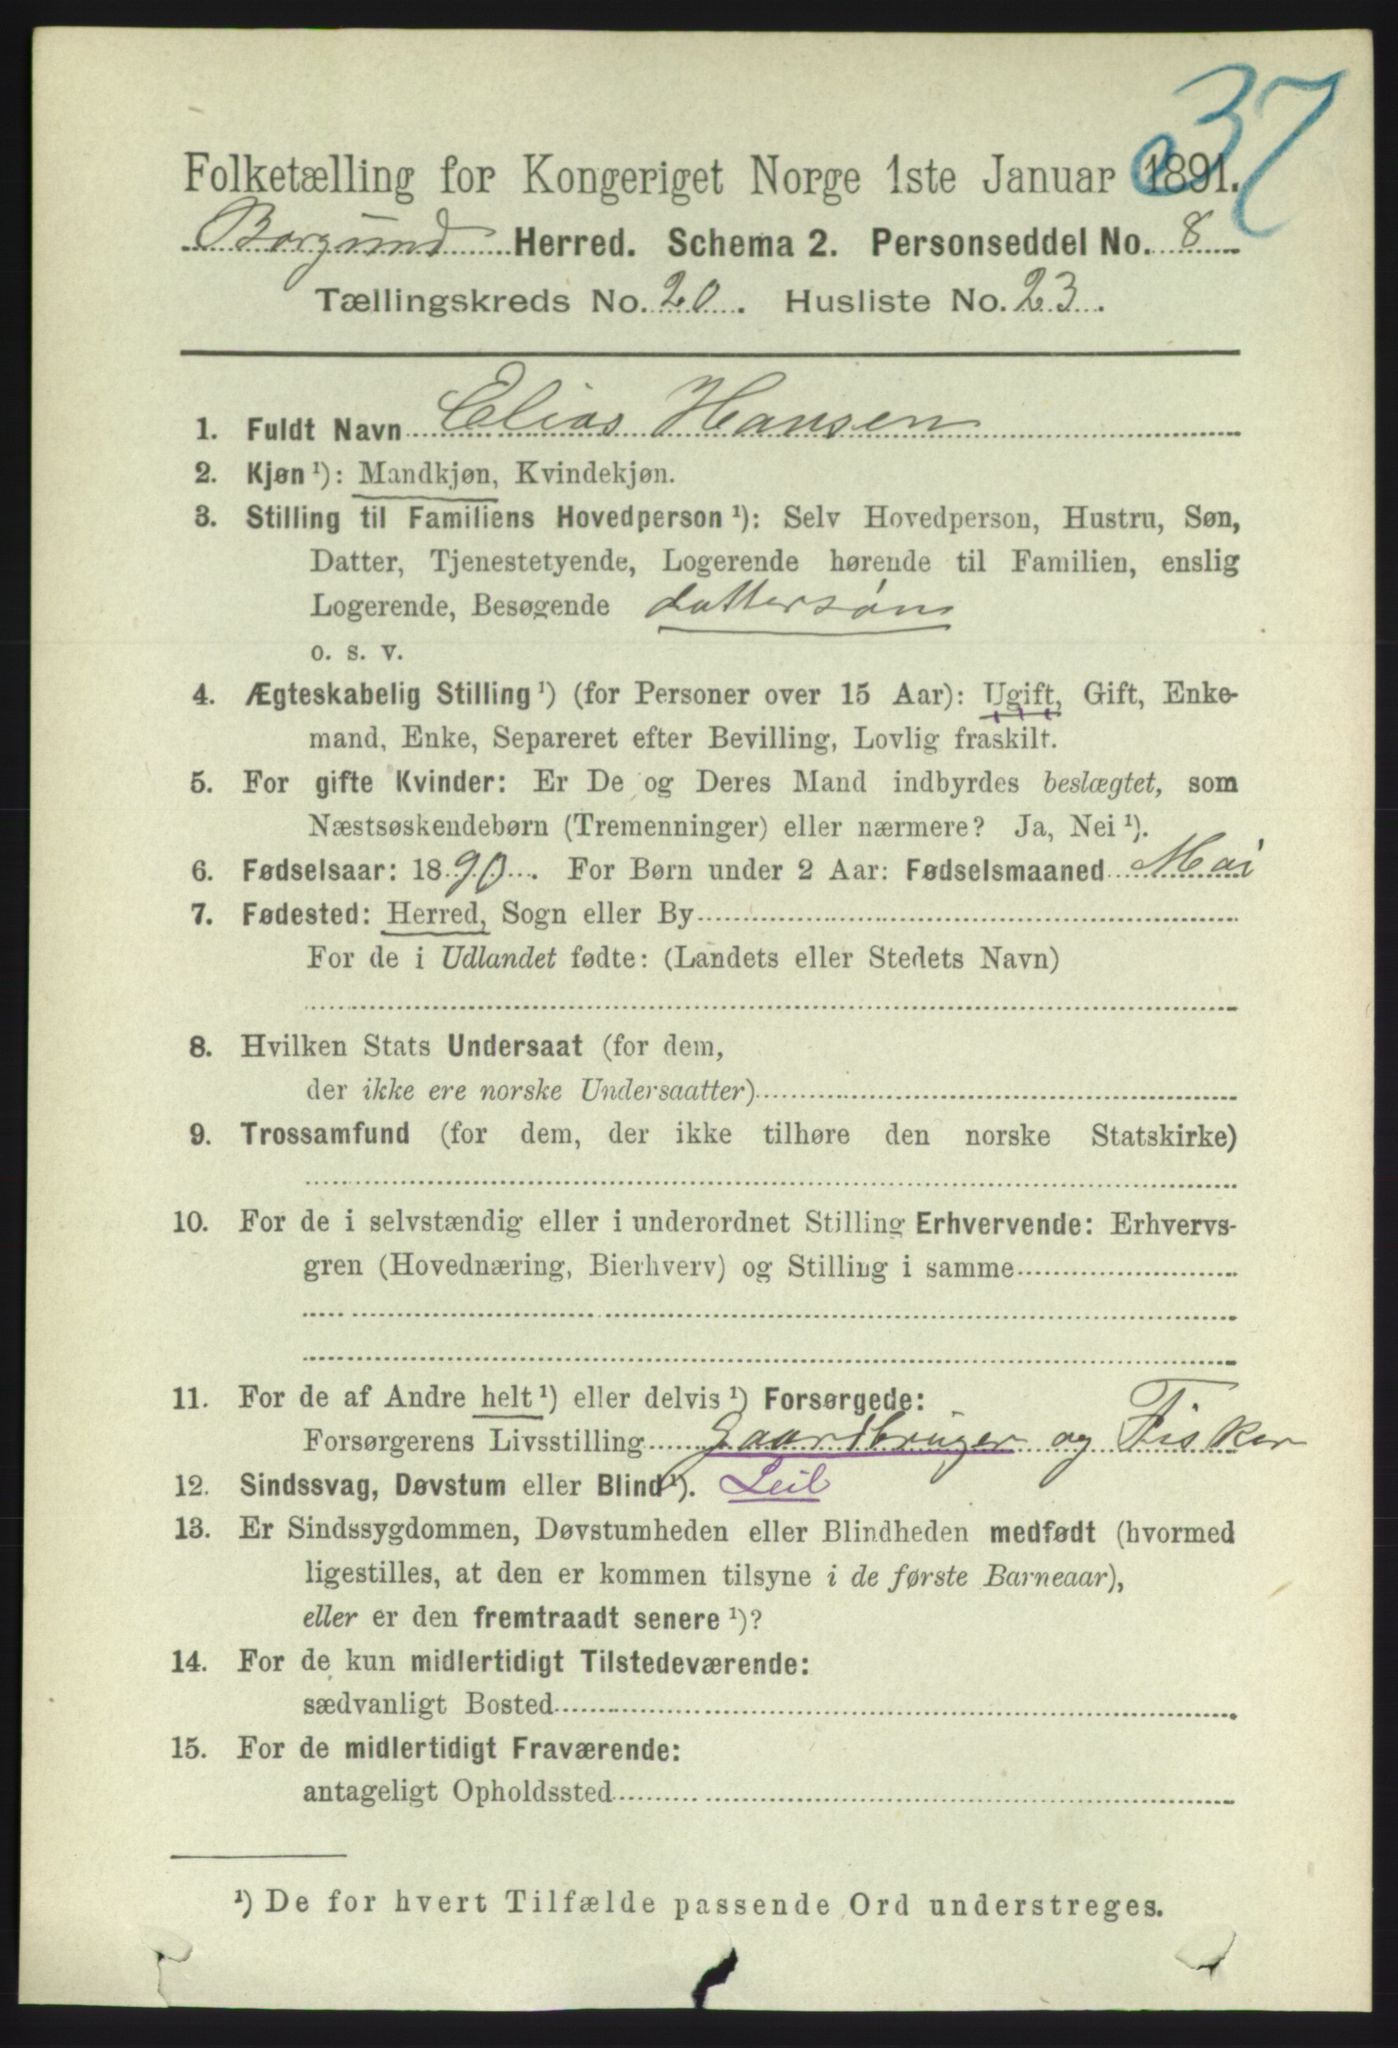 37
Folketælling for Kongeriget Norge 1ste Januar 1891.
Borgund Herred. Schema 2. Personseddel No. 8
Tællingskreds No. 20. Husliste No. 23.
1. Fuldt Navn Elias Hansen
2. Kjøn ¹): Mandkjøn, Kvindekjøn.
3. Stilling til Familiens Hovedperson ¹): Selv Hovedperson, Hustru, Søn,
Datter, Tjenestetyende, Logerende hørende til Familien, enslig
Logerende, Besøgende dattersøn
o. s. v.
4. Ægteskabelig Stilling ¹) (for Personer over 15 Aar): Ugift, Gift, Enke-
mand, Enke, Separeret efter Bevilling, Lovlig fraskilt.
5. For gifte Kvinder: Er De og Deres Mand indbyrdes beslægtet, som
Næstsøskendebørn (Tremenninger) eller nærmere? Ja, Nei ¹).
6. Fødselsaar: 1890. For Børn under 2 Aar: Fødselsmaaned Mai
7. Fødested: Herred, Sogn eller By
For de i Udlandet fødte: (Landets eller Stedets Navn)
8. Hvilken Stats Undersaat (for dem,
der ikke ere norske Undersaatter)
9. Trossamfund (for dem, der ikke tilhøre den norske Statskirke)
10. For de i selvstændig eller i underordnet Stilling Erhvervende: Erhvervs-
gren (Hovednæring, Bierhverv) og Stilling i samme
11. For de af Andre helt ¹) eller delvis ¹) Forsørgede:
Forsørgerens Livsstilling Gaardbruger og Fisker
12. Sindssvag, Døvstum eller Blind ¹). Leil
13. Er Sindssygdommen, Døvstumheden eller Blindheden medfødt (hvormed
ligestilles, at den er kommen tilsyne i de første Barneaar),
eller er den fremtraadt senere ¹)?
14. For de kun midlertidigt Tilstedeværende:
sædvanligt Bosted
15. For de midlertidigt Fraværende:
antageligt Opholdssted
¹) De for hvert Tilfælde passende Ord understreges.